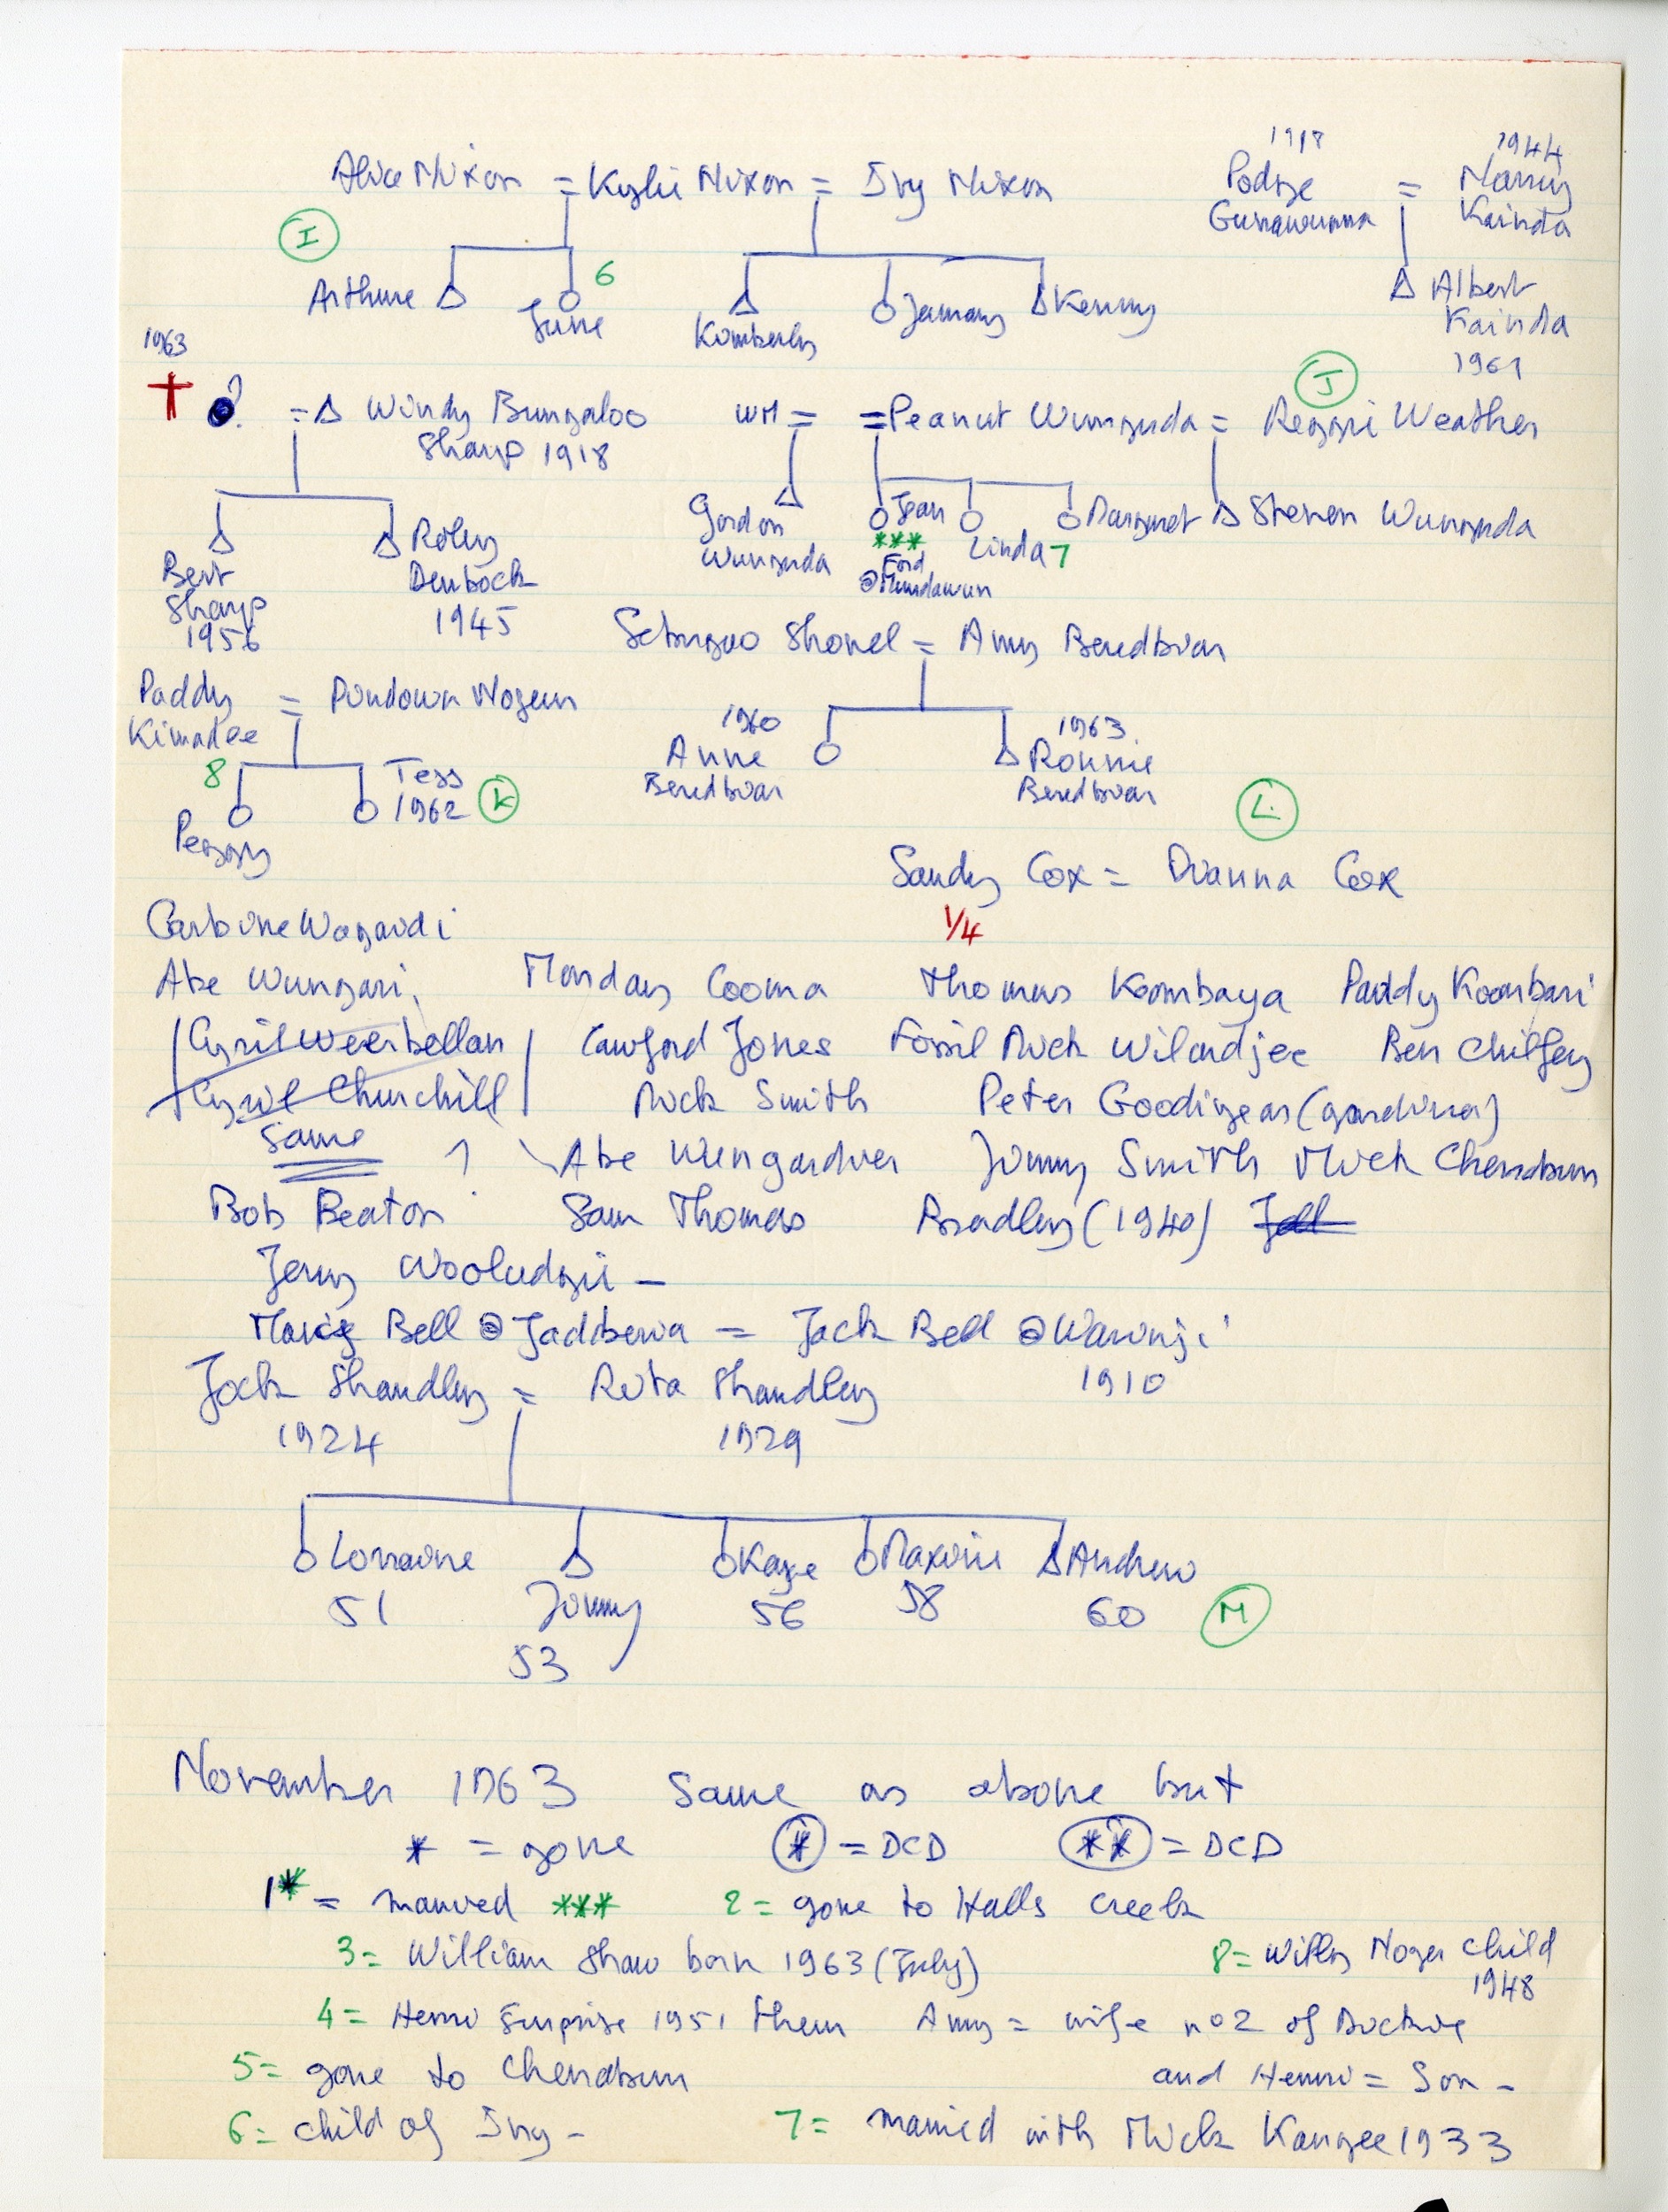 1918 1944
Alice Nixon = Kylie Nixon = Ivy Nixon Podge = Nancy
Gunawunna Kainda
I
6
Arthure June Kimberly Jamany Kenny Albert
Kainda
1961
1963 J
† ? = Windy Bungaloo WM = = Peanut Wungunda = Reggie Weather
Sharp 1918
Gordon Jean Linda 7 Margaret Steven Wungunda
Wungunda *** Ford
@ Mundawun
Bert Roley
Sharp Denbock
1956 1945
Shovel = Amy Beredbvan
Paddy = Pundown Nogun
Kimadee
1960 1963
Anne Ronnie
Beredbvan Beredbvan
8 Tess
1962 K
Peggy
L
Sandy Cox = Dianna Cox
1/4
Carbine Wagardi
Abe Wungari, Monday Cooma Thomas Koombaya Paddy Koombari
Cyril Weerbellan Cawford Jones Fossil Dick Wilardjee Ben Chifley
Cyril Churchill Dick Smith Peter Goodigear (gardiner)
same ? Abe Wungardner Jimmy Smith Mick Cherrabun
Bob Beaton Sam Thomas Bradley (1940)
Jerry Wooludgii -
Bell @ Jadbberia = Jack Bell @ Warinji
1910
Jock Shandley = Rita Shandley
1924 1929
Lorraine Jimmy Kaye Maxine Andrew
51 53 56 58 60
M
November 1963 Same as above but
* = gone * = DCD ** = DCD
1* = married *** 2 = gone to Halls Creek
3 = William Shaw born 1963 (July) 8 = Willy Noger child
1948
4 = Henri Surprise 1951 then Amy = wife no 2 of Dickvie
and Henri = Son -
5 = gone to Cherrabun
6 = child of Ivy - 7 = married with Mick Kangee 1933